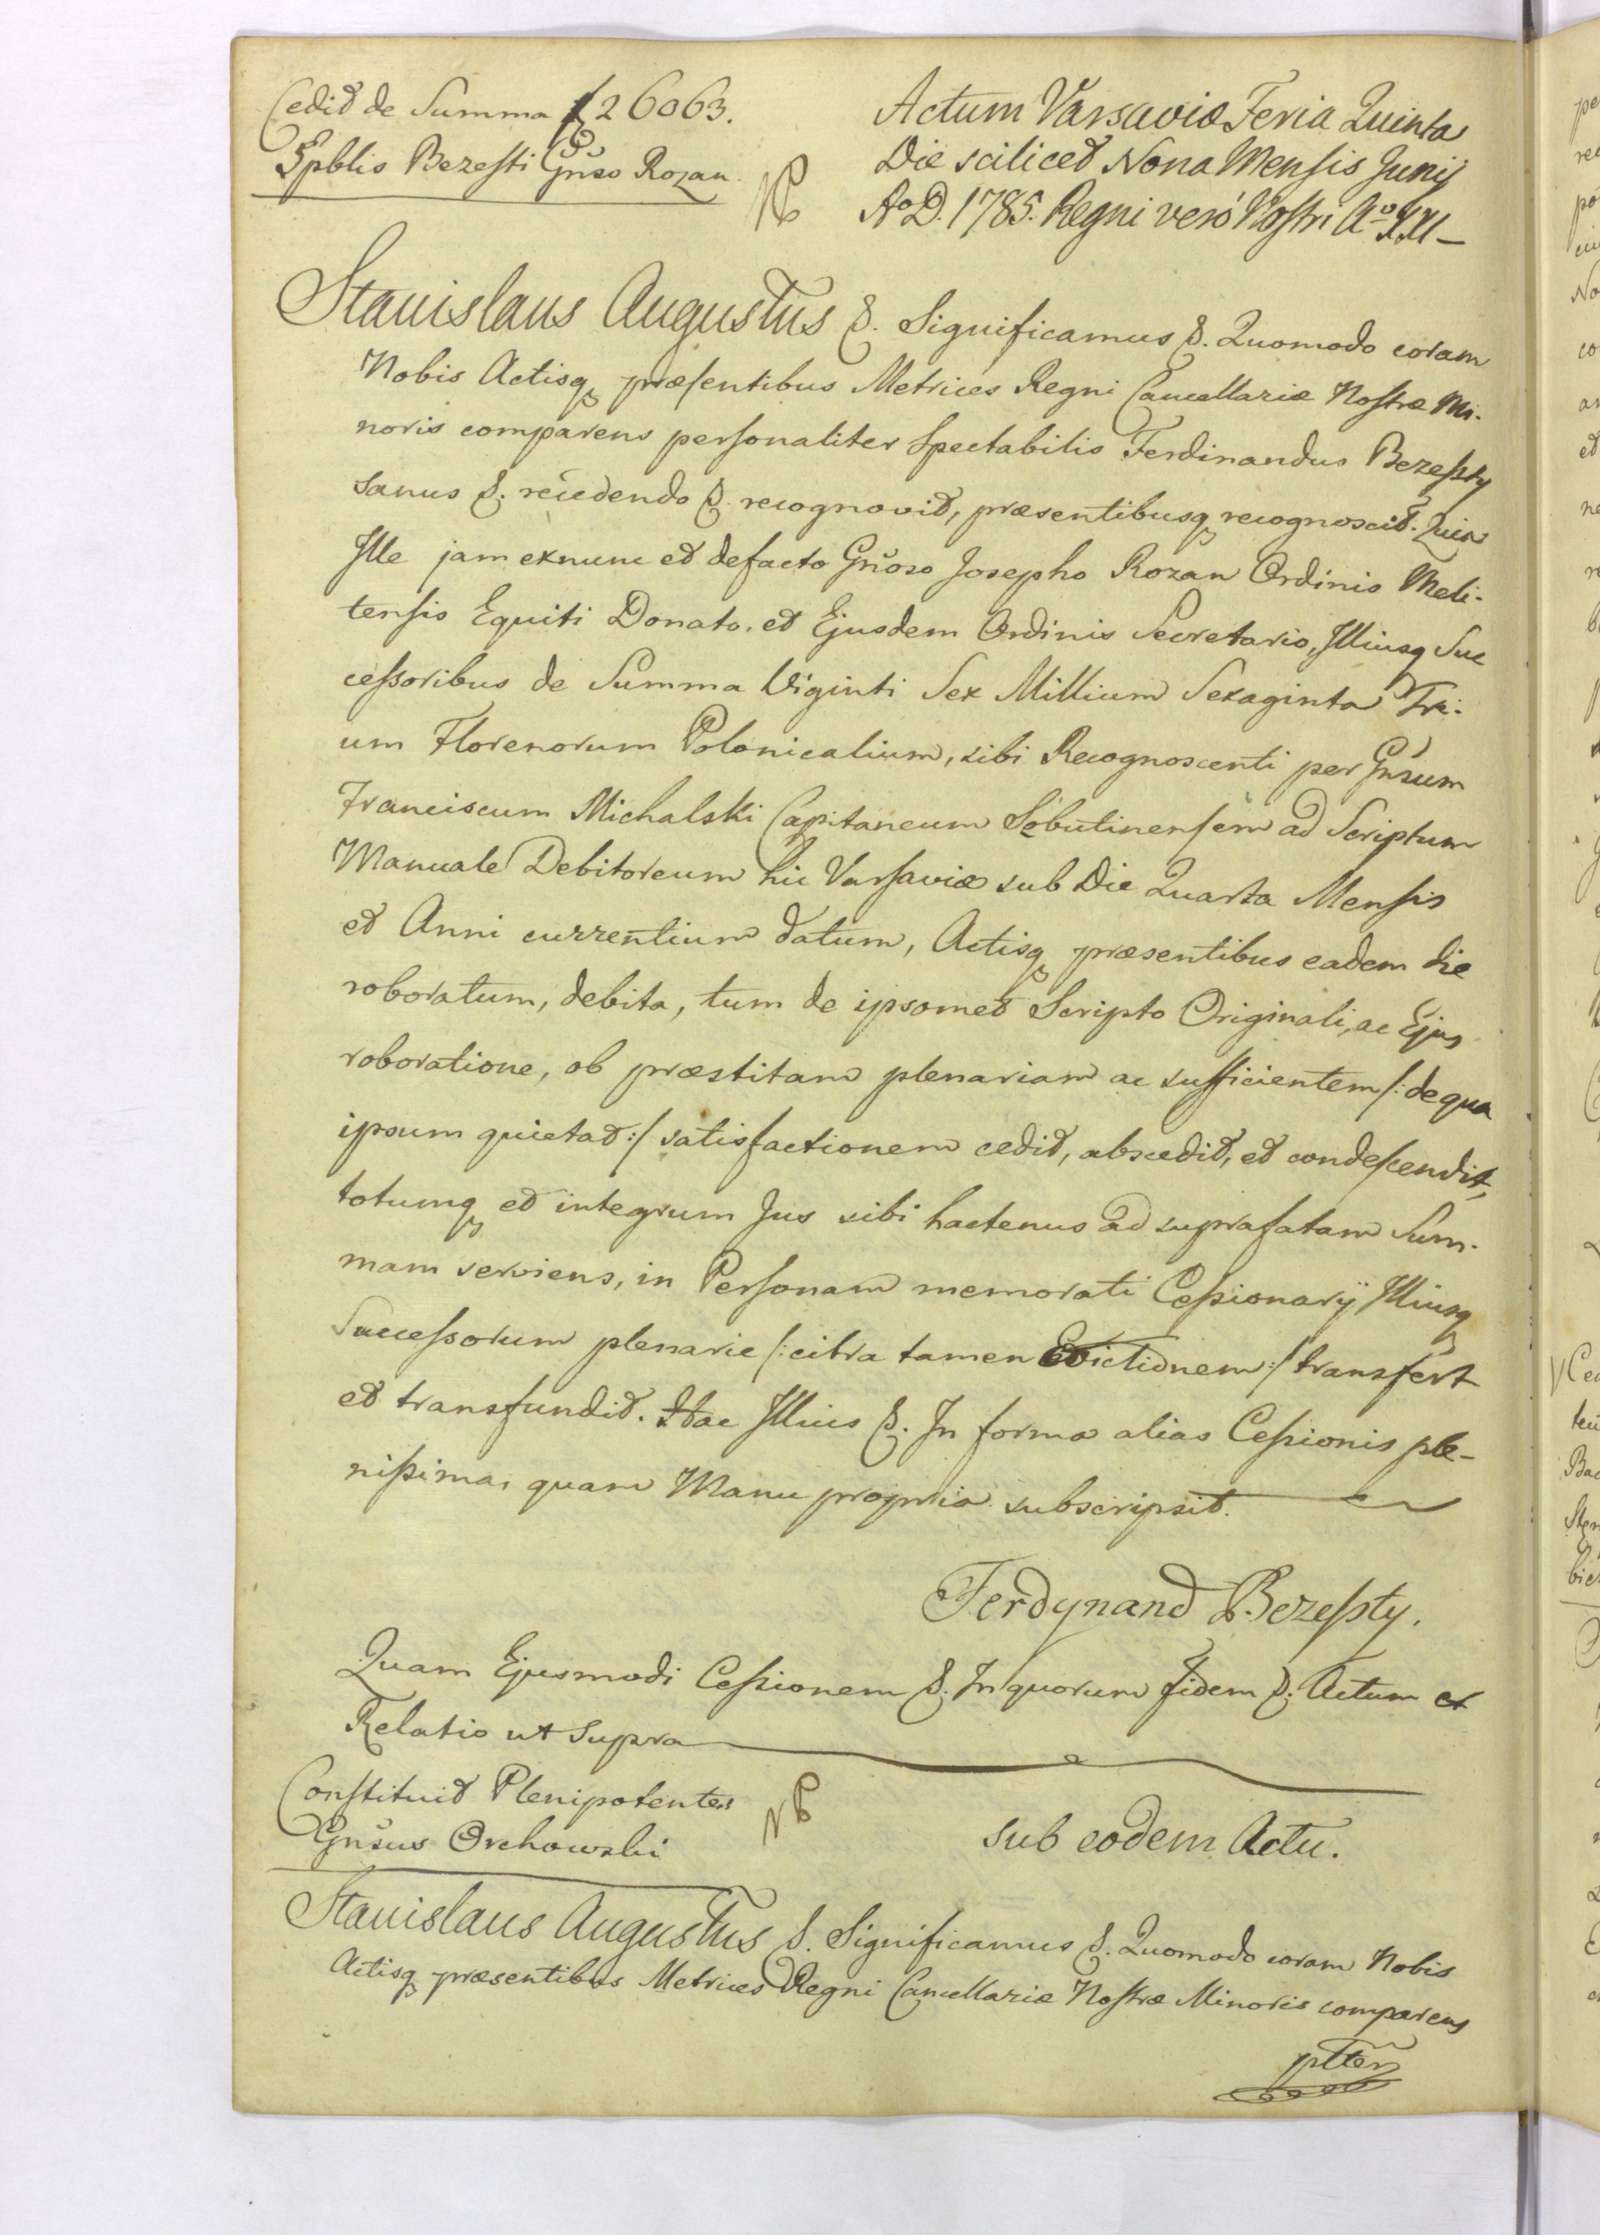 Cedit de Summa f 26063.
Spblis Bezesti Gnso Rozan.
NB
Actum Varsaviæ Feria Quinta
Die scilicet Nona Mensis Junij
Ao D. 1785. Regni veró Nostri Ao XXI
Stanislaus Augustus &. Significamus &. Quomodo coram
Nobis Actisq præsentibus Metrices Regni Cancellariæ Nostræ Mi-
noris comparens personaliter Spectabilis Ferdinandus Bezessty
sanus &. recedendo &. recognovit, præsentibusq recognoscit. Quia
Ille jam exnunc et defacto Gnoso Josepho Rozan Ordinis Meli-
tensis Equiti Donato, et Ejusdem Ordinis Secretario, Illiusq Suc
cessoribus de Summa Viginti Sex Millium Sexaginta Tri-
um Florenorum Polonicalium, sibi Recognoscenti per Gnsum
Franciscum Michalski Capitaneum Sobutinensem ad Scriptum
Manuale Debitoreum hic Varsaviæ sub Die Quarta Mensis
et Anni currentium datum, Actisq præsentibus eadem die
roboratum, debita, tum de ipsomet Scripto Originali, ac Ejus
roboratione, ob præstitam plenariam ac sufficientem /: de qua
ipsum quietat :/ satisfactionem cedit, abscedit, et condescendit,
totumq et integrum Jus sibi hactenus ad suprafatam Sum-
mam serviens, in Personam memorati Cessionarij Illiusq
Successorum plenarie /: citra tamen Evictionem :/ transfert
et transfundit. Hac Illius &. In forma alias Cessionis ple-
nissima, quam Manu propria subscripsit.
Ferdynand Bezessty.
Quam Ejusmodi Cessionem &. In quorum fidem &. Actum et
Relatio ut supra
Constituit Plenipotentes
Gnsus Orchowski
NB
sub eodem Actu.
Stanislaus Augustus &. Significamus &. Quomodo coram Nobis
Actisq præsentibus Metrices Regni Cancellariæ Nostræ Minoris comparens